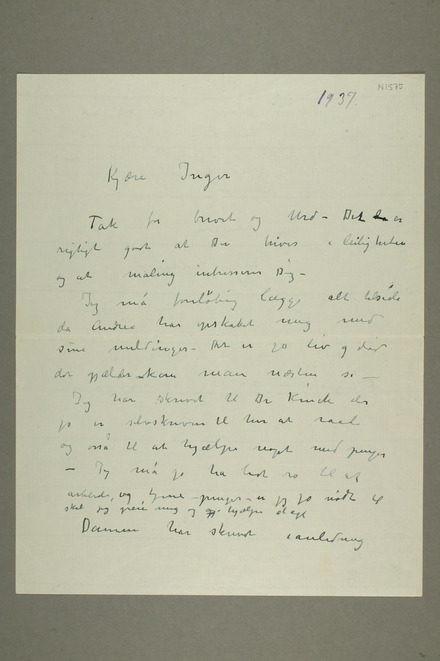 N 1575
1937.
Kjære Inger
Tak for brevet og Urd – Det er
rigtigt godt at Du trives i leiligheten
og at maling interesserer Dig –
Jeg må foreløbig lægge alt tilside
da Andrea har opskaket meg med
sine meldinger – Det er jo liv og død
det gjælder kan man næsten si –
Jeg har skrevet til Dr Kinck der
jo er selvskreven til hur at raad
og også til at hjælpe noget med penger
– Jeg må jo ha lidt ro til at
arbeide, og tjene penger – er jeg jo nødt til
skal jeg greie meg og hjælpe
Damen har skrevet i anledning